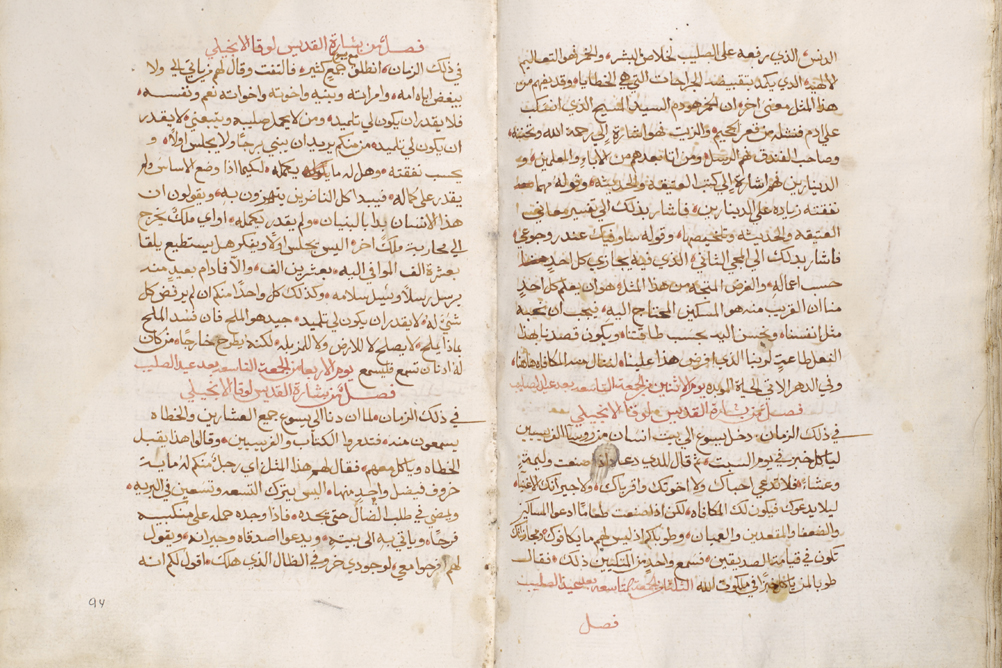 الدنس الذي رفعه على الصليب لخلاص البشر والخمر هو التعاليم
الالهيه الذي يكمد بتقبيضه الجراحات التي هي الخطايا وقد يفهم من
هذا المثل معنى اخر ان الخمر هو دم السيد المسيح الذي انسكب
على ادم فنشله من قعر الجحيم والزيت فهو اشارة إلى رحمة الله وتحننه
وصاحب الفندق هم الرسل ومن اتا بعدهم من الاباء والمعلمين و
الدينارين فهم اشارة إلى كتب العتيقة والحديثة وقوله مهما
نفقته زياده على الدينارين فاشار بذلك الى تفسير معاني
العتيقة والحديثة وتلخيصها وقوله ساوفيك عند رجوعي
فاشار بذلك الى المجي الثاني الذي فيه يجازي كل احد
حسب اعماله والغرض المتخذ من هذا المثل هو ان يعلم كل احد
منا ان القريب منه هو المسكين المحتاج اليه يجب ان نحبه
مثل انفسنا ونحسن اليه بحسب طاقتنا ويكون قصدنا بهذا
الفعل طاعة لربنا الذي افرض هذا علينا لننال منه المكافاه هاهنا
وفي الدهر الاتي الحياة الموبده يوم الاثنين من الجمعة التاسعه بعد عيد الصليب
فصل من بشارة القديس لوقا الانجيلي
في ذلك الزمان دخل يسوع الى بيت انسان من روسا الفريسيين
لياكل خبز في يوم السبت ثم قال للذي دعاه اذا صنعت وليمة
وعشاء فلا تدعي احباك ولا اخوتك واقرباك ولا جيرانك الاغنيا
ليلا يدعوك فيكون لك المكافاه لكن اذا صنعت طعاما ادعو المساكين
والضعفا والمقعدين والعميان وطوباك اذ ليس لهم ما يكافوك
تكون في قيامة الصديقين فسمع واحد من المتكيين ذلك فقال
طوبا لمن ياكل خبزا في ملكوت الله الثلثا من الجمعة التاسعه بعد عيد الصليب
فصل
فصل من بشارة القديس لوقا الانجيلي
في ذلك الزمان انطلق جمع كثير فالتفت وقال لهم من ياتي إلي ولا
يبغض اباه امه وامراته وبنيه واخوته واخواته نعم ونفسه
فلا يقدر ان يكون لي تلميد ومن لا يحمل صليبه ويتبعني لا يقدر
ان يكون لي تلميد من منكم يريد ان يبني برجا ولا يجلس اولا و
يحسب نفقته وهل له ما يكمله لكيما اذا وضع الاساس ولم
يقدر على كماله فيبدا كل الناضرين يتهزون به ويقولون ان
هذا الانسان بدا بالبنيان ولم يقدر يكمله او اي ملك يخرج
الى محاربة ملك اخر اليس يجلس اولا ويفكر هل يستطيع يلقا
بعشرة الف الموافي اليه بعشرين الف والا فادام بعيد منه
يرسل رسلا ويسل سلامه وكذلك كل واحدا منكم ان لم يرفض كل
شي له لا يقدر ان يكون لي تلميد جيد هو الملح فان فسد الملح
بماذا يملح لا يصلح لا للارض ولا للمزبله لكنه يطرح خارجا من كان
له ادنان تسمع فليسمع يوم الاربعا من الجمعة التاسعه بعد عيد الصليب
فصل من بشارة القديس لوقا الانجيلي
في ذلك الزمان لما ان دنا الى يسوع جمع العشارين والخطاه
يسمعون منه فتدمروا الكتاب والفريسيين وقالوا هذا يقبل
الخطاه وياكل معهم فقال لهم هذا المثل اي رجل منكم له ماية
خروف فيضل واحد منهما اليس يترك التسعه وتسعين في البريه
ويمضي في طلب الضال حتى يجده فاذا وجده حمله على منكبيه
فرحا وياتي به الى بيته ويدعوا اصدقاه وجيرانه ويقول
لهم افرحوا معي لوجودي خروفي الظال الذي هلك اقول لكم انه
94